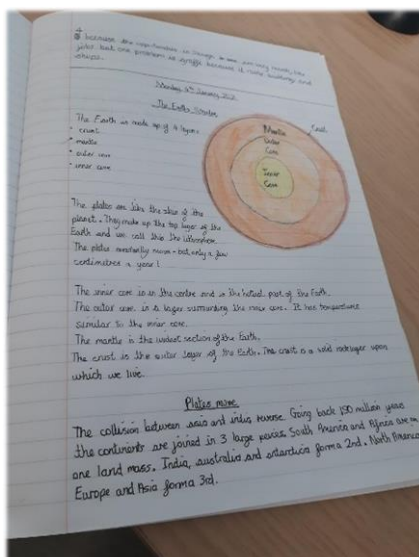 because the opportunities
jobs but one problem is because it make buildings and
Monday
The Earth's Structure
The Earth is made up of 4 layers
• crust
• mantle
• outer core
• inner core
Mantle
Crust
Outer
Core
Inner
Core
The plates are like the skin of the
planet. They make up the top layer of the
Earth and we call this the lithosphere.
The plates constantly move - but only a few
centimetres a year!
The inner core is in the centre and is the hottest part of the Earth.
The outer core is a layer surrounding the inner core. It has temperature
similar to the inner core.
The mantle is the widest section of the Earth.
The crust is the outer layer of the Earth. The crust is a solid rock layer upon
which we live.
Plates move
The collision between asia and india reverse. Going back 150 million years
the continents are joined in 3 large pieces. South America and Africa are
one land mass. India, australia and antarctica form a 2nd. North America
Europe and Asia form a 3rd.